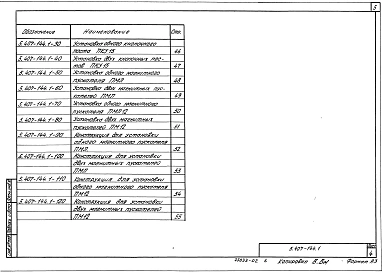 3
Обозначение Наименование Стр.
5.407-144.1-30 Установка одного кнопочного
поста ПКЕ15 46
5.407-144.1-40 Установка двух кнопочных пос-
тов ПКЕ15 47
5.407-144.1-50 Установка одного магнитного
пускателя ПМЛ 48
5.407-144.1-60 Установка двух магнитных пус-
кателей ПМЛ 49
5.407-144.1-70 Установка одного магнитного
пускателя ПМ12 50
5.407-144.1-80 Установка двух магнитных
пускателей ПМ12 51
5.407-144.1-90 Конструкция для установки
одного магнитного пускателя
ПМЛ 52
5.407-144.1-100 Конструкция для установки
двух магнитных пускателей
ПМЛ 53
5.407-144.1-110 Конструкция для установки
одного магнитного пускателя
ПМ12 54
5.407-144.1-120 Конструкция для установки
двух магнитных пускателей
ПМ12 55
5.407-144.1
Лист
4
25033-02 6 Копировал Формат А3